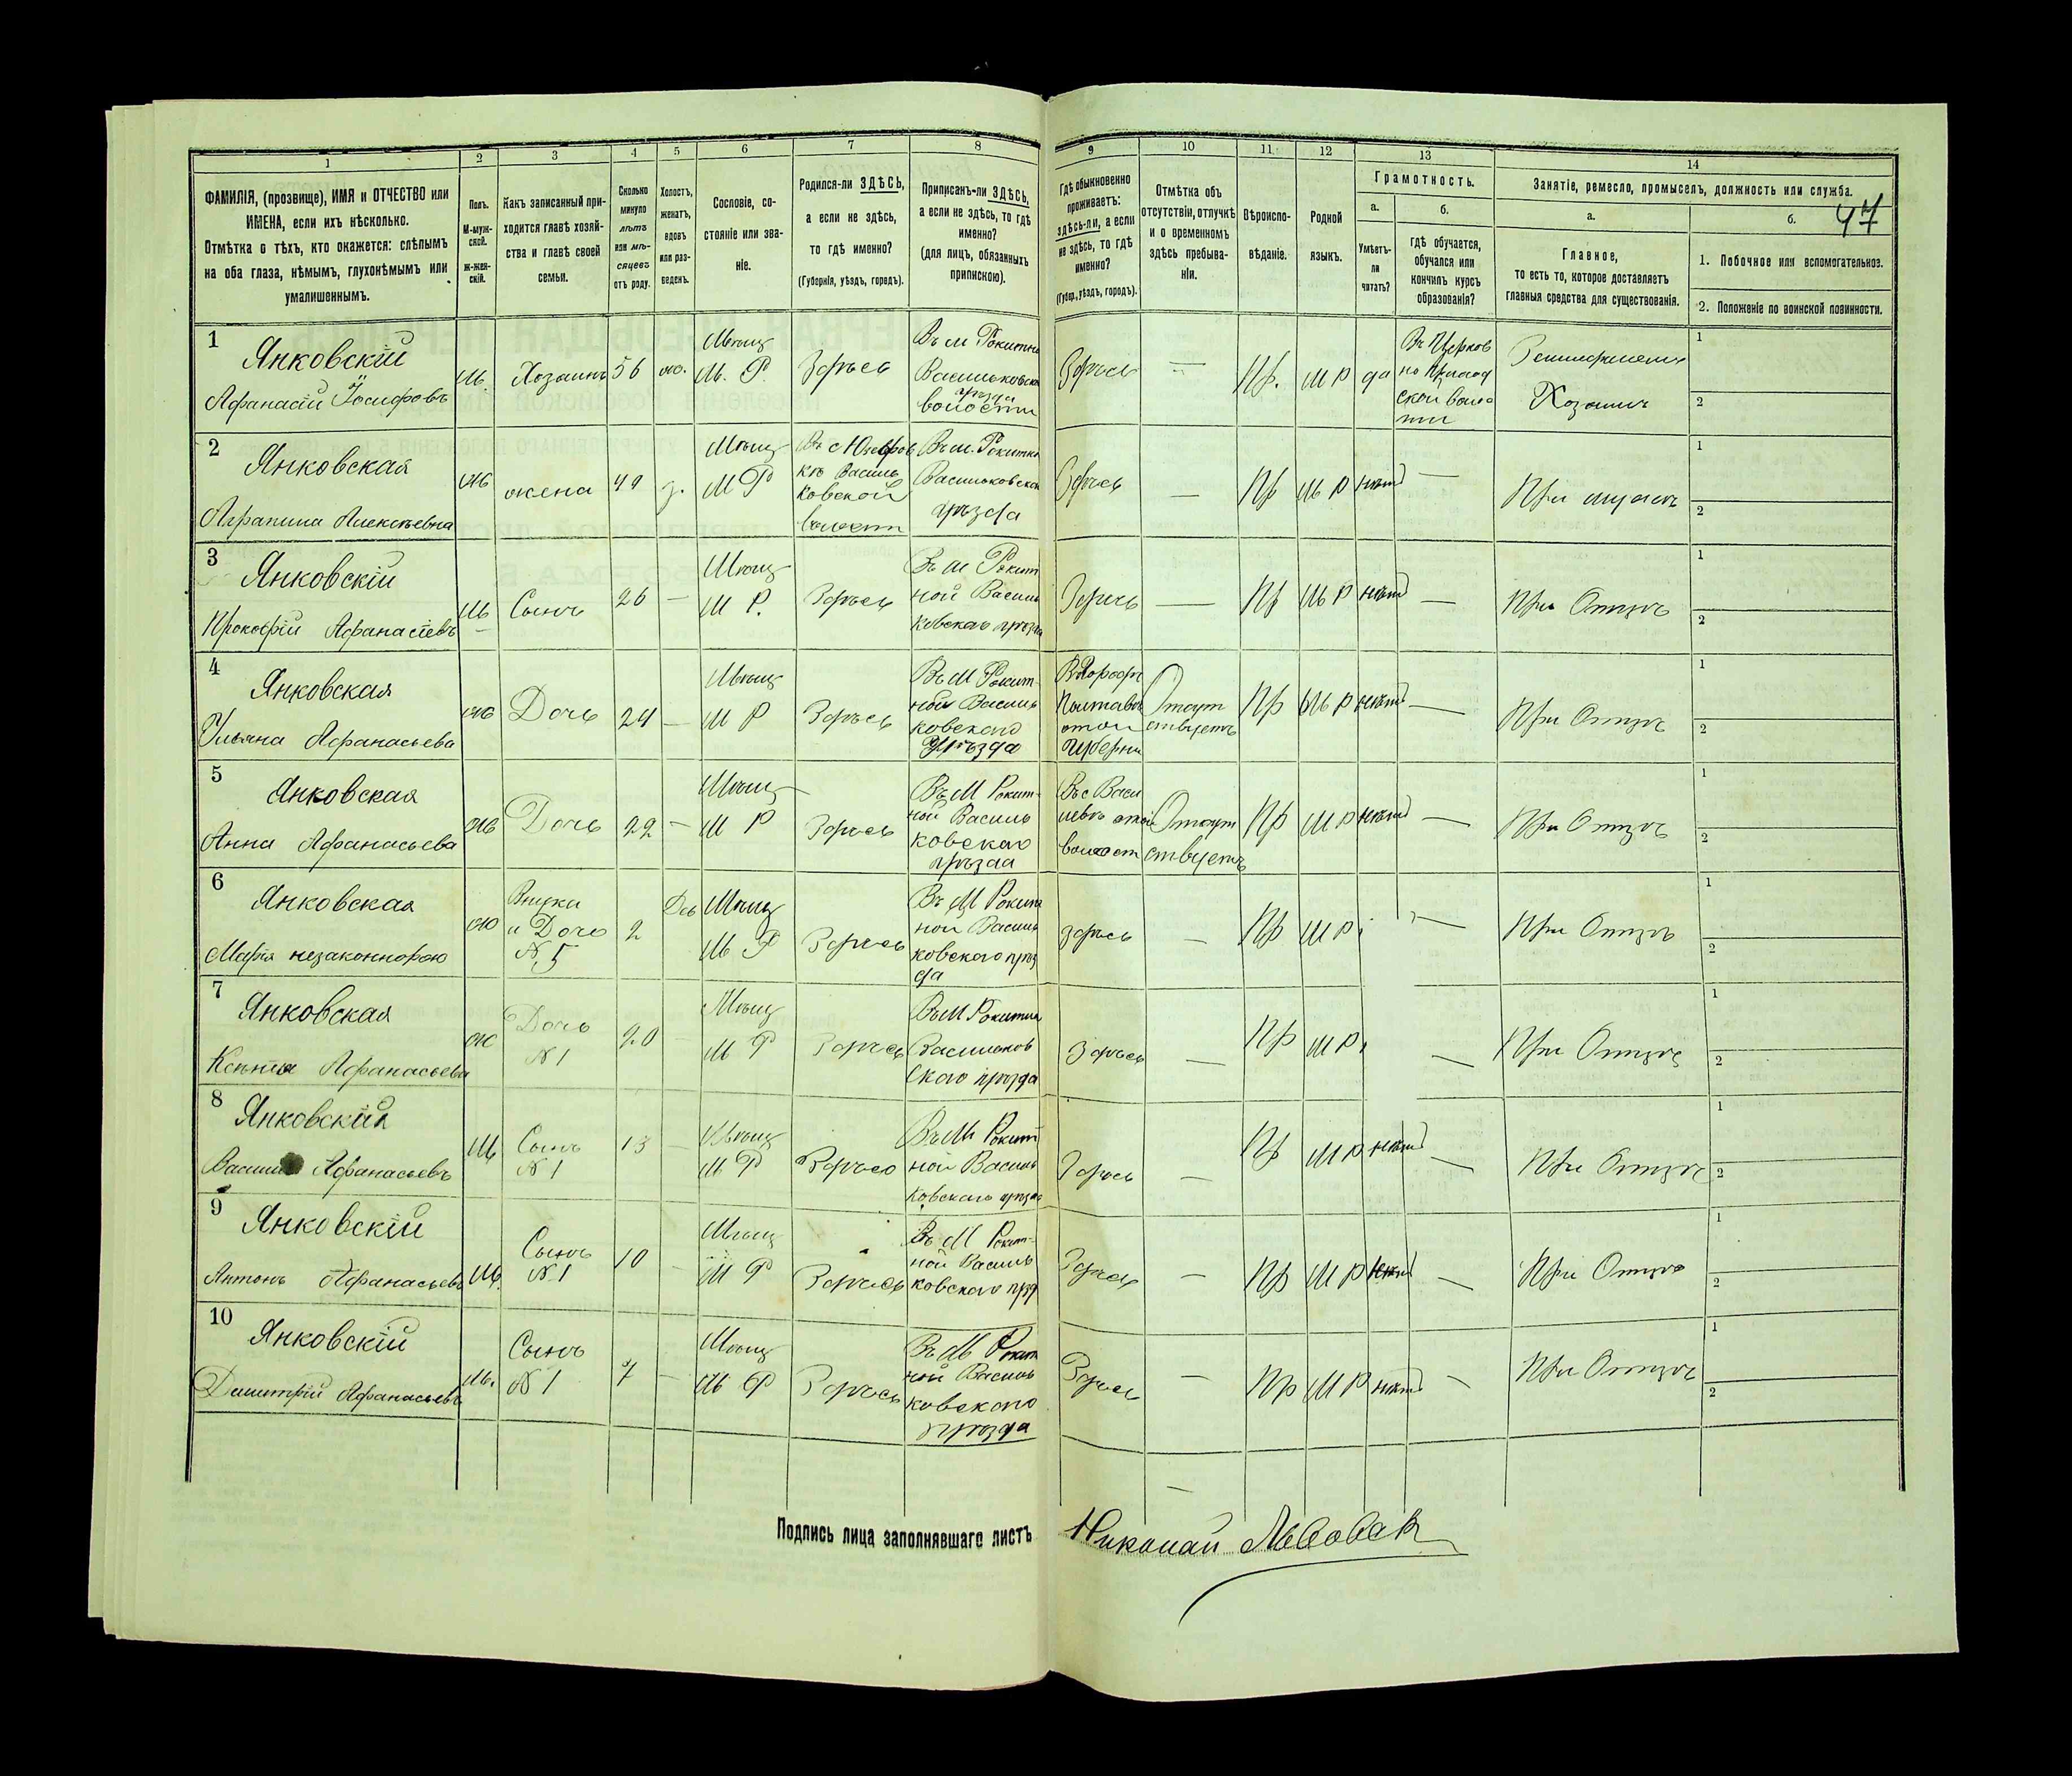 1 2 3 4 5 6 7 8 9 10 11 12 13 14
ФАМИЛІЯ, (прозвище), ИМЯ и ОТЧЕСТВО или
ИМЕНА, если ихъ нѣсколько.
Отмѣтка о тѣхъ, кто окажется: слѣпымъ
на оба глаза, нѣмымъ, глухонѣмымъ или
умалишеннымъ.
Полъ.
М-муж-
ской.
ж-жен-
скій.
Какъ записанный при-
ходится главѣ хозяй-
ства и главѣ своей
семьи.
Сколько
минуло
лѣтъ
или мѣ-
сяцевъ
отъ роду.
Холостъ,
женатъ,
вдовъ
или раз-
веденъ.
Сословіе, со-
стояніе или зва-
ніе.
Родился-ли ЗДѢСЬ,
а если не здѣсь,
то гдѣ именно?
(Губернія, уѣздъ, городъ).
Приписанъ-ли ЗДѢСЬ,
а если не здѣсь, то гдѣ
именно?
(для лицъ, обязанныхъ
припискою).
Гдѣ обыкновенно
проживаетъ:
здѣсь-ли, а если
не здѣсь, то гдѣ
именно?
(Губер., уѣздъ, городъ).
Отмѣтка объ
отсутствіи, отлучкѣ
и о временномъ
здѣсь пребыва-
ніи.
Вѣроиспо-
вѣданіе.
Родной
языкъ.
Грамотность.
а.
Умѣетъ-
ли
читать?
б.
гдѣ обучается,
обучался или
кончилъ курсъ
образованія?
Занятіе, ремесло, промыселъ, должность или служба.
47
а.
Главное,
то есть то, которое доставляетъ
главныя средства для существованія.
б.
1. Побочное или вспомогательное.
2. Положеніе по воинской повинности.
1
Янковскій
Афанасій Іосифовъ
м.
Хозяинъ
56
ж.
Мѣщ
М. Р.
Здѣсь
Въ м Рокитна
Васильковск
уѣзда
волости
Здѣсь
—
Пр.
М Р
да
Въ Церков
но Приход
ской
Хозяинъ
1
2
2
Янковская
Агрипина Алексѣевна
ж
жена
49
з.
Мѣщ
М Р
Васильковск
уѣзда
Здѣсь
—
Пр
М Р
нѣт
—
При мужѣ
1
2
3
Янковскій
Прокофій Афанасіевъ
м
Сынъ
26
—
Мѣщ
М Р.
Здѣсь
Въ м Рокит
ной Василь
ковскаго уѣзда
Здѣсь
—
Пр
М Р
нѣт
—
При Отцѣ
1
2
4
Янковская
Ульяна Афанасьева
ж
Дочь
24
—
Мѣщ
М Р
Здѣсь
Въ М Рокит-
ной Василь
ковскаго
Уѣзда
Полтавск
Губерни
Отсут
ствуетъ
Пр
М Р
нѣт
—
При Отцѣ
1
2
5
Янковская
Анна Афанасьева
ж
Дочь
22
—
Мѣщ
М Р
Здѣсь
Въ М Рокит-
ной Василь
ковскаго
уѣзда
Въ с Васи
волост
Отсут
ствуетъ
Пр
М Р
нѣт
—
При Отцѣ
1
2
6
Янковская
Марія незаконнорож
ж
Внука
и Дочь
№ 5
2
Дѣв
Мѣщ
М Р
Здѣсь
Въ М Рокит
ной Василь
ковскаго уѣз
да
здѣсь
—
Пр
М Р
—
При Отцѣ
1
2
7
Янковская
Афанасьева
ж
Дочь
№ 1
20
Мѣщ
М Р
Здѣсь
Въ М Рокитна
Васильков
скаго уѣзда
Здѣсь
—
Пр
М Р
—
При Отцѣ
1
2
8
Янковскій
Афанасьевъ
м
Сынъ
№ 1
13
—
Мѣщ
М Р
Здѣсь
Въ М Рокит
ной Василь
ковскаго уѣзда
Здѣсь
—
Пр
М Р
нѣт
—
При Отцѣ
1
2
9
Янковскій
Антонъ Афанасьевъ
м.
Сынъ
№ 1
10
—
Мѣщ
М Р
Здѣсь
Въ М Рокит-
ной Василь
ковскаго уѣзд
Здѣсь
—
Пр
М Р
нѣт
—
При Отцѣ
1
2
10
Янковскій
Димитрій Афанасьевъ
м.
Сынъ
№ 1
7
—
Мѣщ
М Р
Здѣсь
Въ М Рокит
ной Василь
ковскаго
уѣзда
Здѣсь
—
Пр
М Р
нѣт
—
При Отцѣ
1
2
—
Подпись лица заполнявшаго листъ
Николай